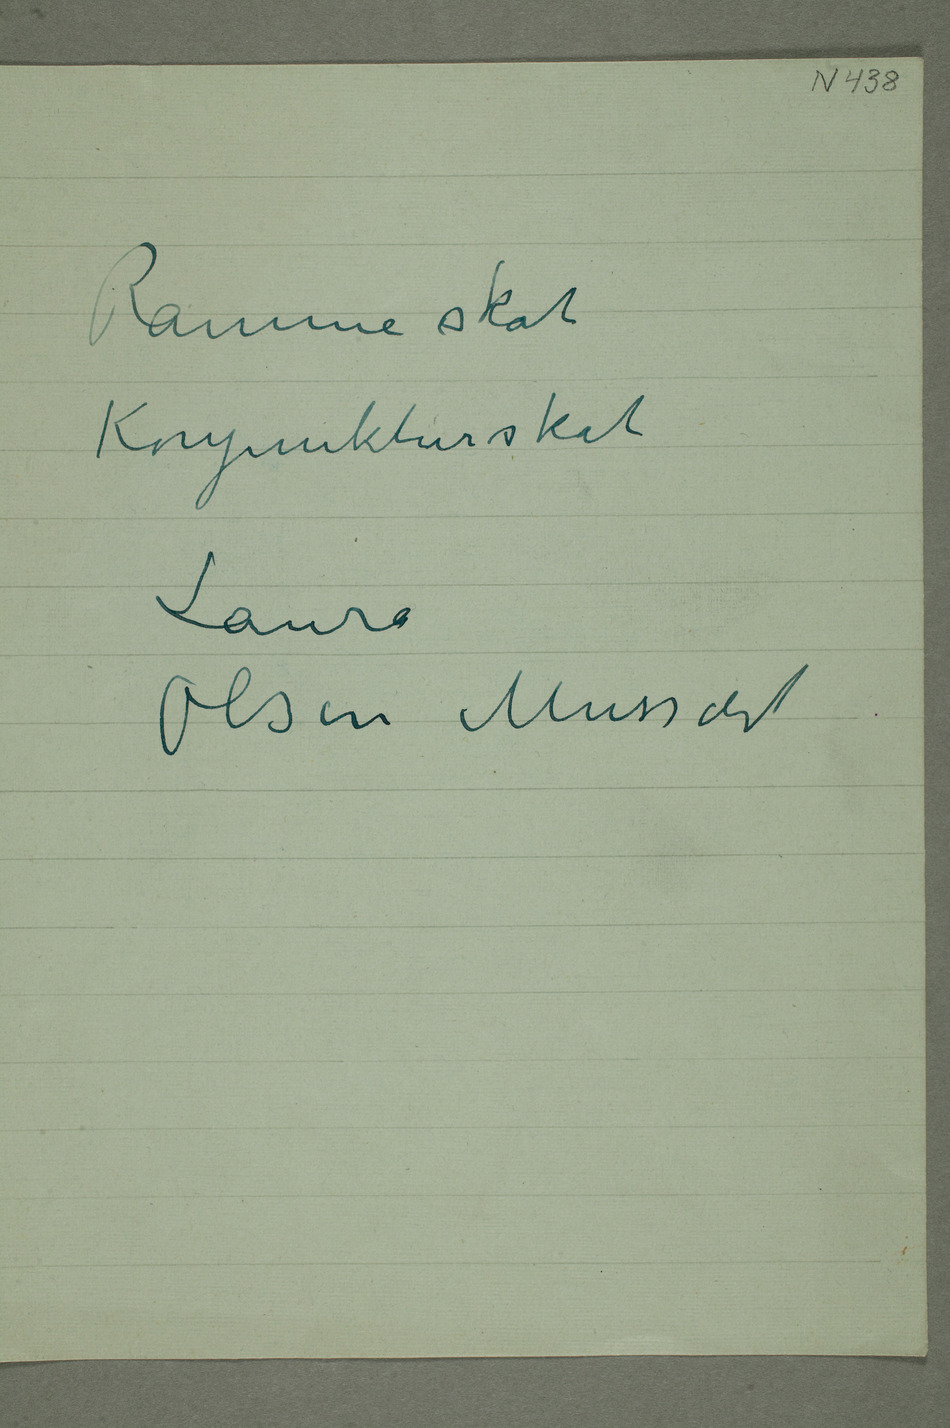 N 438
Rammeskat
Konjunkturskat
Laura
Olsen